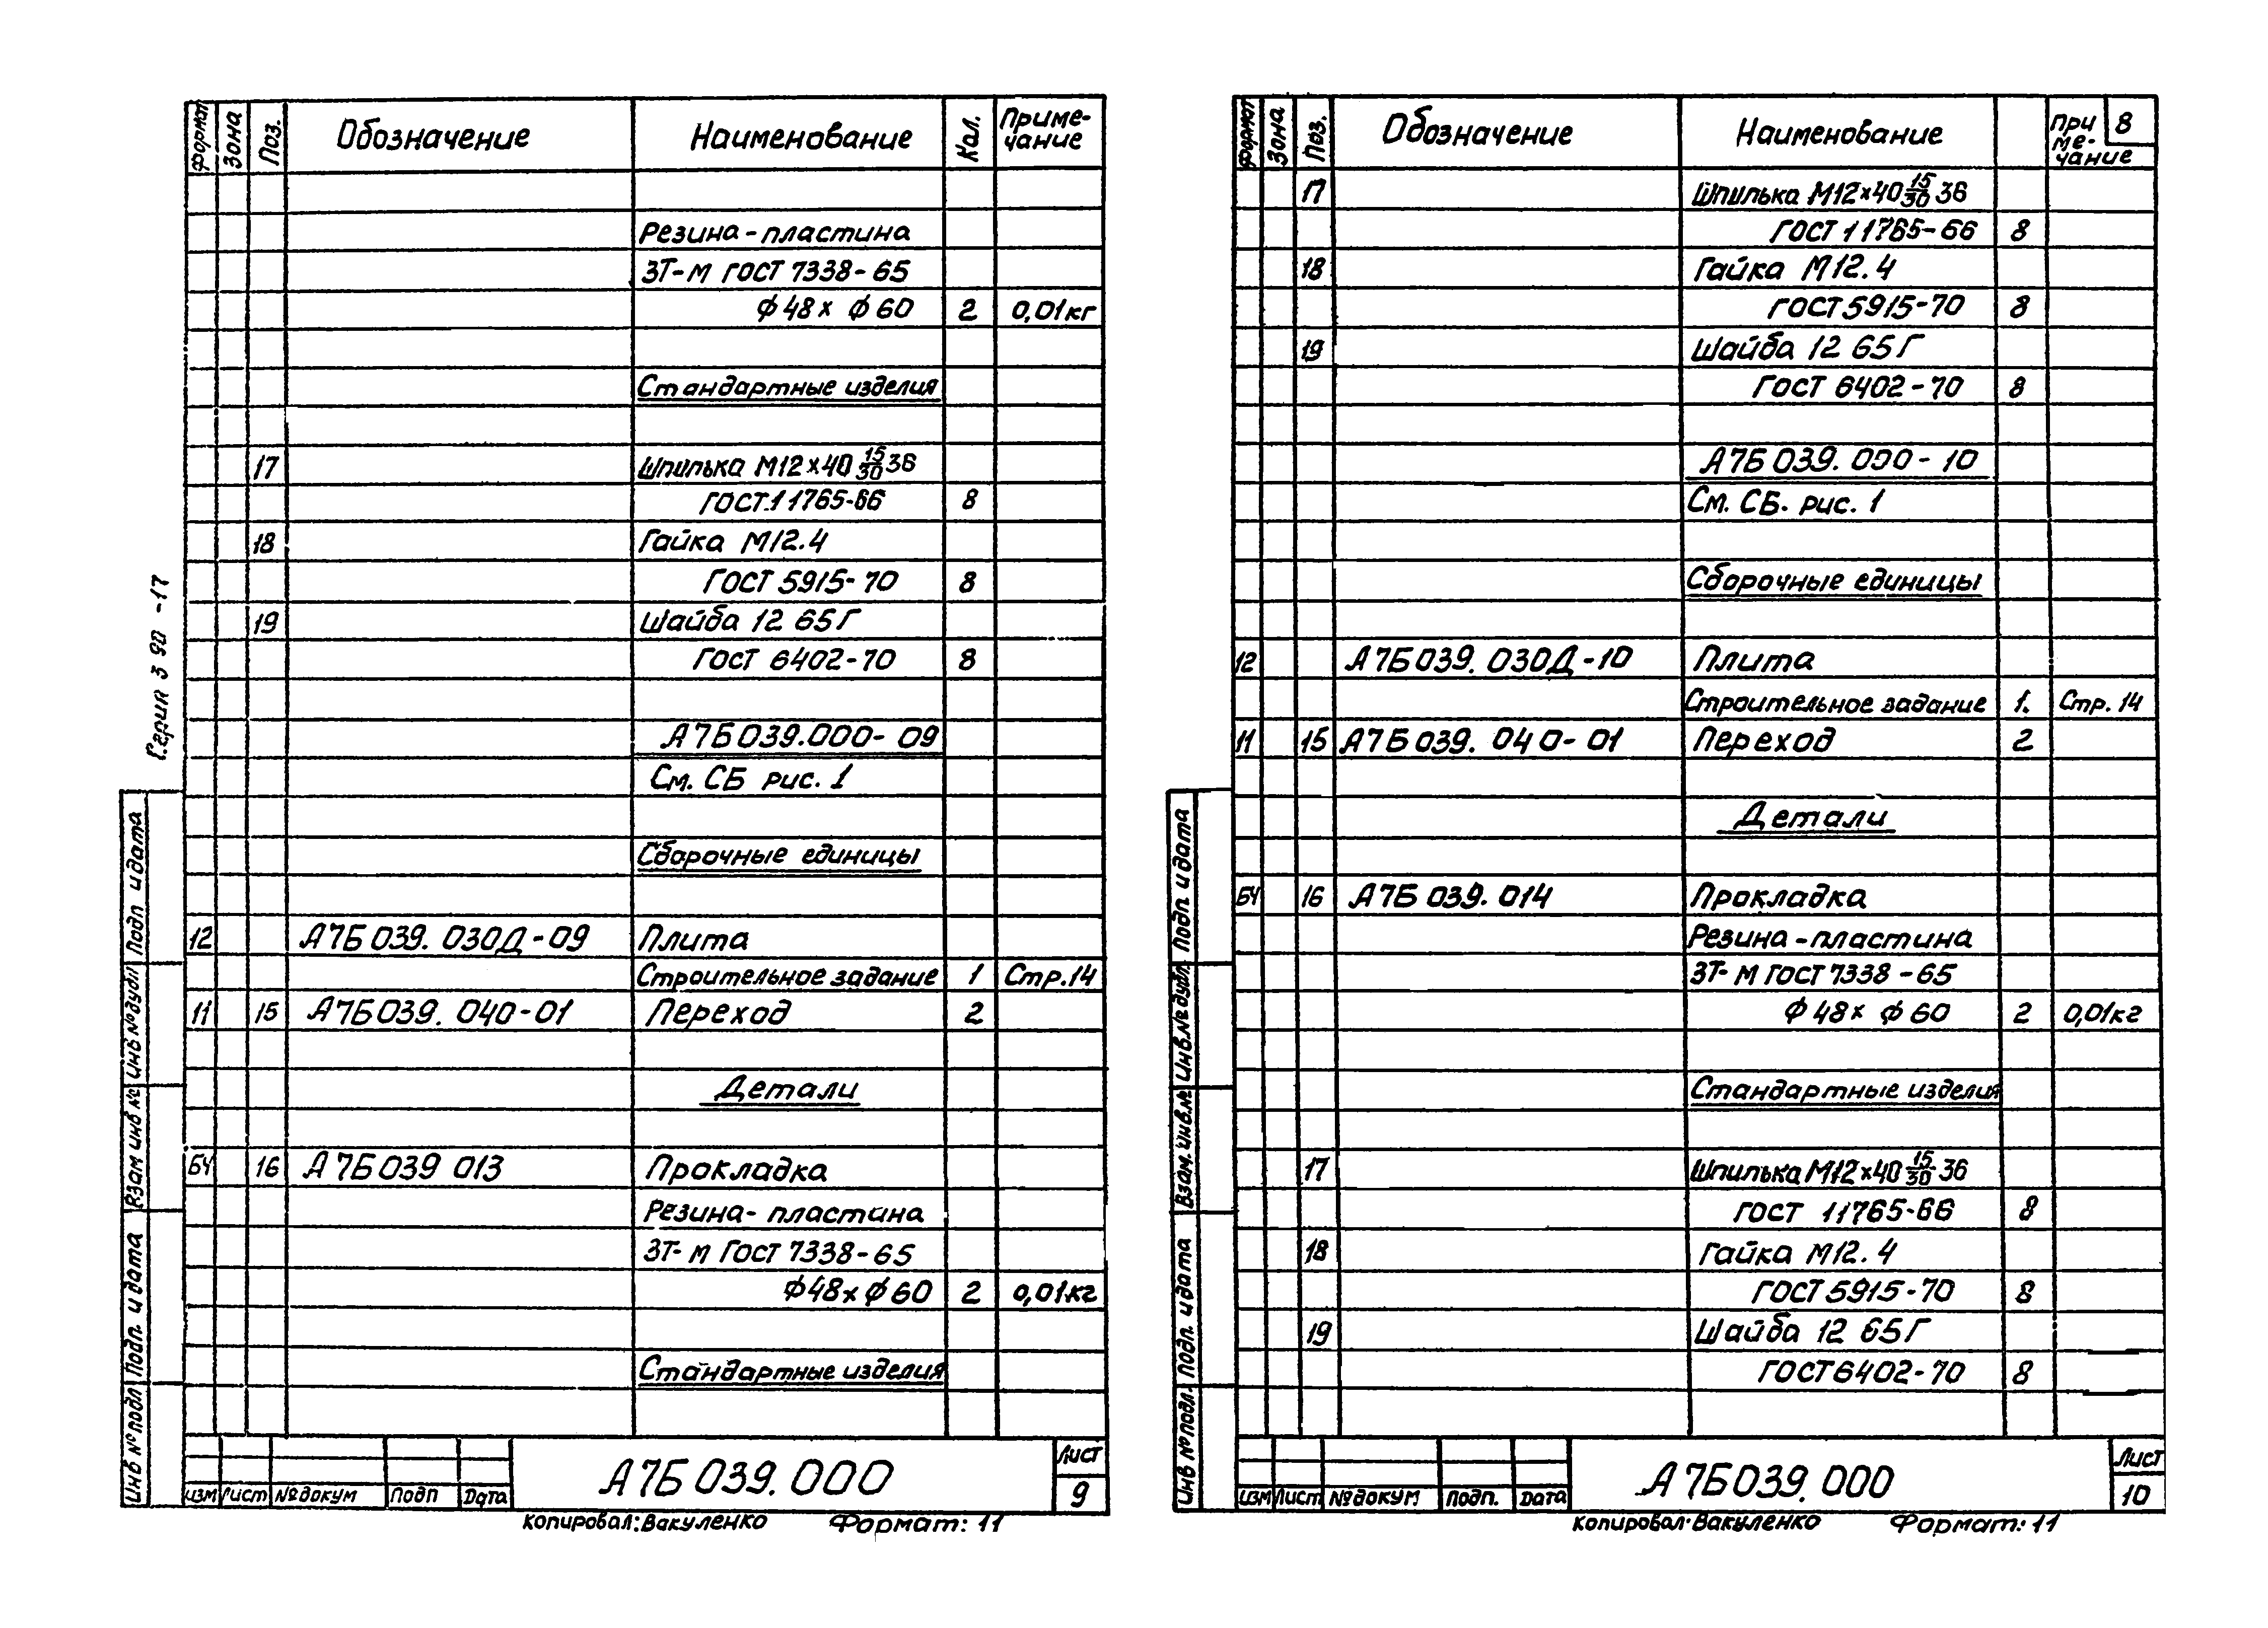 Формат Зона Поз. Обозначение Наименование Кол. Приме-
чание
Резина-пластина
3Т-м ГОСТ 7338-65
ф48х ф60 2 0,01кг
Стандартные изделия
17 Шпилька М12х40 15/30 36
ГОСТ 11765-66 8
18 Гайка М12.4
ГОСТ 5915-70 8
19 Шайба 12 65Г
ГОСТ 6402-70 8
А7Б039.000-09
См. СБ рис. 1
Сборочные единицы
12 А7Б039.030Д-09 Плита
Строительное задание 1 Стр.14
11 15 А7Б039.040-01 Переход 2
Детали
БЧ 16 А7Б039 013 Прокладка
Резина-пластина
3Т-м ГОСТ 7338-65
ф48х ф60 2 0,01кг
Стандартные изделия
изм Лист №докум Подп Дата
А7Б039.000
Лист
9
Копировал: Вакуленко Формат: 11
Серия 3 90 -17
Подп и дата
Инв №дубл
Взам инв №
Подп. и дата
Инв №подл
Формат Зона Поз. Обозначение Наименование При
ме-
чание
8
17 Шпилька М12х40 15/30 36
ГОСТ 11765-66 8
18 Гайка М12.4
ГОСТ 5915-70 8
19 Шайба 12 65Г
ГОСТ 6402-70 8
А7Б039.000-10
См. СБ. рис. 1
Сборочные единицы
12 А7Б039.030Д-10 Плита
Строительное задание 1. Стр. 14
11 15 А7Б039.040-01 Переход 2
Детали
БЧ 16 А7Б039.014 Прокладка
Резина-пластина
3Т-м ГОСТ 7338-65
ф48х ф60 2 0,01кг
Стандартные изделия
17 Шпилька М12х40 15/30 36
ГОСТ 11765-66 8
18 Гайка М12.4
ГОСТ 5915-70 8
19 Шайба 12 65Г
ГОСТ 6402-70 8
изм Лист №докум Подп. Дата
А7Б039.000
Лист
10
Копировал: Вакуленко Формат: 11
Подп. и дата
Инв.№ дубл.
Взам. инв.№
Подп. и дата
Инв №подл.